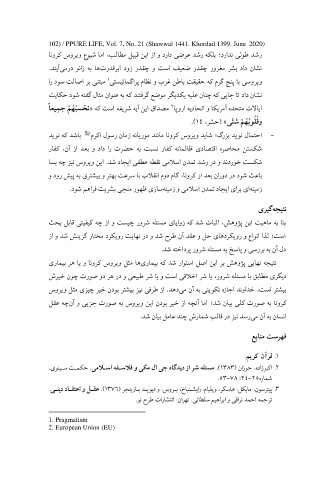 102) / PPURE LIFE, Vol. 7, No. 21 (Shawwal 1441. Khordad 1399. June 2020)
رشد طولی ندارد؛ بلکه رشد عرضی دارد و از این قبیل مطالب، اما شیوع ویروس کرونا
نشان داد بشر مغرور چقدر ضعیف است و چقدر زود ابرقدرت‌ها به زانو درمی‌آیند.
ویروسی با پنج گرم که حقیقت باطن غرب و نظام پراگماتیستی¹ مبتنی بر اصالت سود را
نشان داد تا جایی که چنان علیه یکدیگر موضع گرفتند که به عنوان مثال گفته شود حکایت
ایالات متحده آمریکا و اتحادیه اروپا² مصداق این آیه شریفه است که «تَحْسَبُهُمْ جَمِیعاً
وَقُلُوبُهُمْ شَتَّى» (حشر، ۱۴).
- احتمال نوید بزرگ؛ شاید ویروس کرونا مانند موریانه زمان رسول اکرم باشد که نوید
شکستن محاصره اقتصادی ظالمانه کفار نسبت به حضرت را داد و بعد از آن، کفار
شکست خوردند و در رشد تمدن اسلامی نقطه عطفی ایجاد شد. این ویروس نیز چه بسا
باعث شود در دوران بعد از کرونا، گام دوم انقلاب با سرعت بهتر و بیشتری به پیش رود و
زمینه‌ای برای ایجاد تمدن اسلامی و زمینه‌سازی ظهور منجی بشریت فراهم شود.
نتیجه‌گیری
بنا به ماهیت این پژوهش، اثبات شد که زوایای مسئله شرور چیست و از چه کیفیتی قابل بحث
است؛ لذا انواع و رویکردهای حل و عقد آن طرح شد و در نهایت رویکرد مختار گزینش شد و از
دل آن به بررسی و پاسخ به مسئله شرور پرداخته شد.
نتیجه نهایی پژوهش بر این اصل استوار شد که بیماری‌ها مثل ویروس کرونا و یا هر بیماری
دیگری مطابق با مسئله شرور، یا شر اخلاقی است و یا شر طبیعی و در هر دو صورت چون خیرش
بیشتر است، خداوند اجازه تکوینی به آن می‌دهد. از طرفی نیز بیشتر بودن خیر چیزی مثل ویروس
کرونا به صورت کلی بیان شد؛ اما آنچه از خیر بودن این ویروس به صورت جزیی و آن‌چه عقل
انسان به آن می‌رسد نیز در قالب شمارش چند عامل بیان شد.
فهرست منابع
۱. قرآن کریم.
۲. اکبرزاده، حوزان (۱۳۸۳). مسئله شر از دیدگاه جی ال مکی و فلاسفه اسلامی. حکمت سینوی.
شماره۲۵-۲۴: ۷۸-۵۳.
۳. پیترسون، مایکل. هاسکر، ویلیام. رایشنباخ، بروس. و دیوید بازینجر (۱۳۷۶). عقل و اعتقاد دینی.
ترجمه احمد نراقی و ابراهیم سلطانی. تهران: انتشارات طرح نو.
1. Pragmatism
2. European Union (EU)